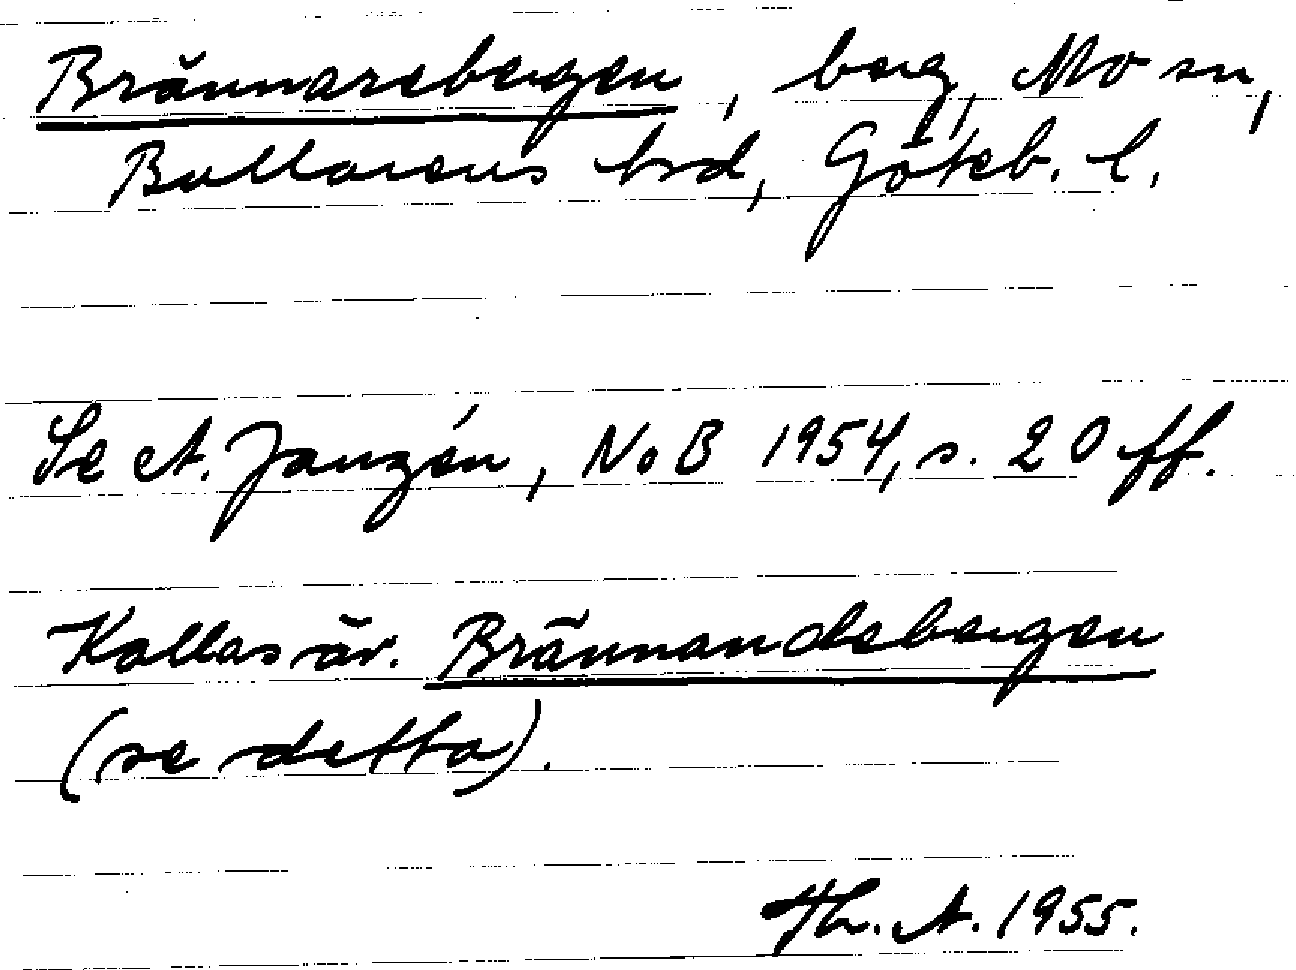 Brännarebergen, berg, Mo sn,
Bullarens hrd, Göteb. l.
Se A. Janzén, NoB 1954, s. 20 ff.
Kallas äv. Brännandebergen
(se detta).
Th. A. 1955.